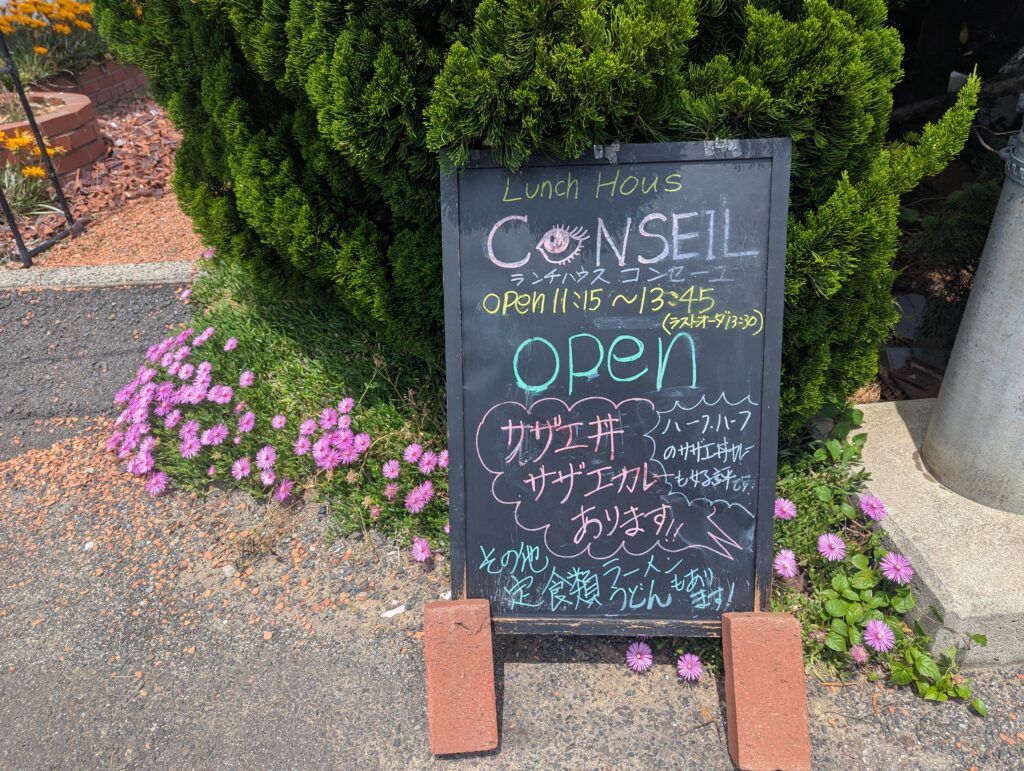 Lunch Hous
CONSEIL
ランチハウス コンセーユ
open 11:15 ～13:45
(ラストオーダ13:30)
open
サザエ丼
サザエカレー
あります!!
ハーフ、ハーフ
のサザエ丼カレー
も好評です。
その他
定食類 ラーメン
うどんもあります!